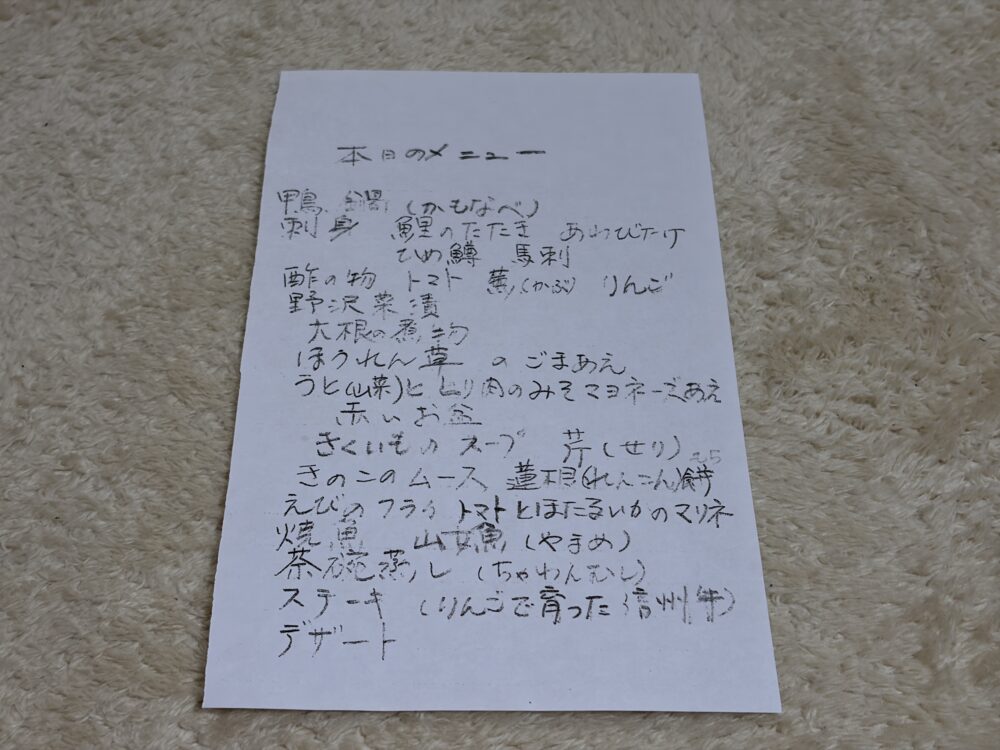 本日のメニュー
鴨鍋 (かもなべ)
刺身 鯉のたたき あわびたけ
ひめ鱒 馬刺
酢の物 トマト 蕪(かぶ) りんご
野沢菜漬
大根の煮物
ほうれん草 のごまあえ
うと(山菜)と とり肉のみそマヨネーズあえ
赤いお盆
きくいものスープ 芹(せり)
きのこのムース 蓮根(れんこん)餅
えびのフライ トマトとほたるいかのマリネ
焼魚 山女魚(やまめ)
茶碗蒸し (ちゃわんむし)
ステーキ (りんごで育った信州牛)
デザート